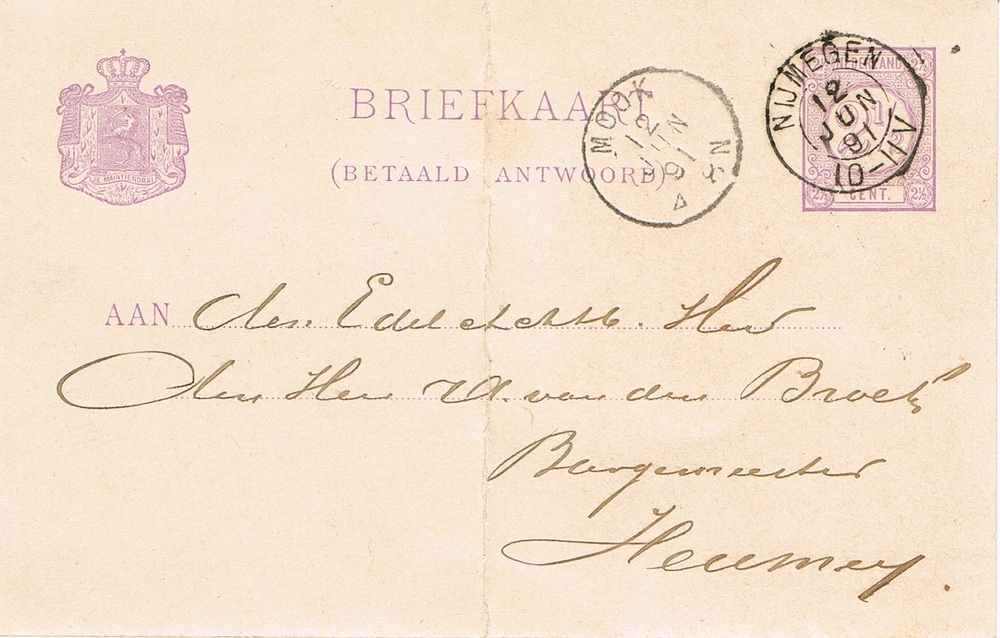 BRIEFKAART
(BETAALD ANTWOORD)
JE MAINTIENDRAI
MOOK
12 JUN 91
4-8N
NIJMEGEN
12 JUN 91
10-11V
NEDERLAND
2½ CENT. 2½
AAN Den Edelachtb. Heer
Den Heer van den Broek
Burgemeester
Heumen.